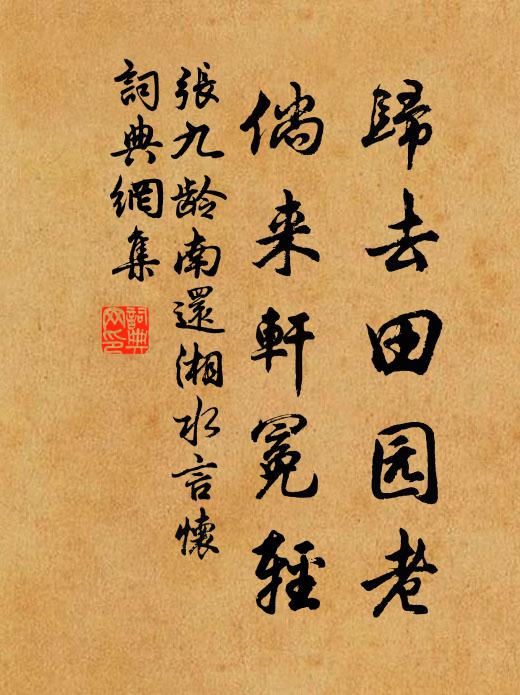 歸去田园老
倘来軒冕輕
張九龄南還湘水言懷
詞典網集
詞典網印